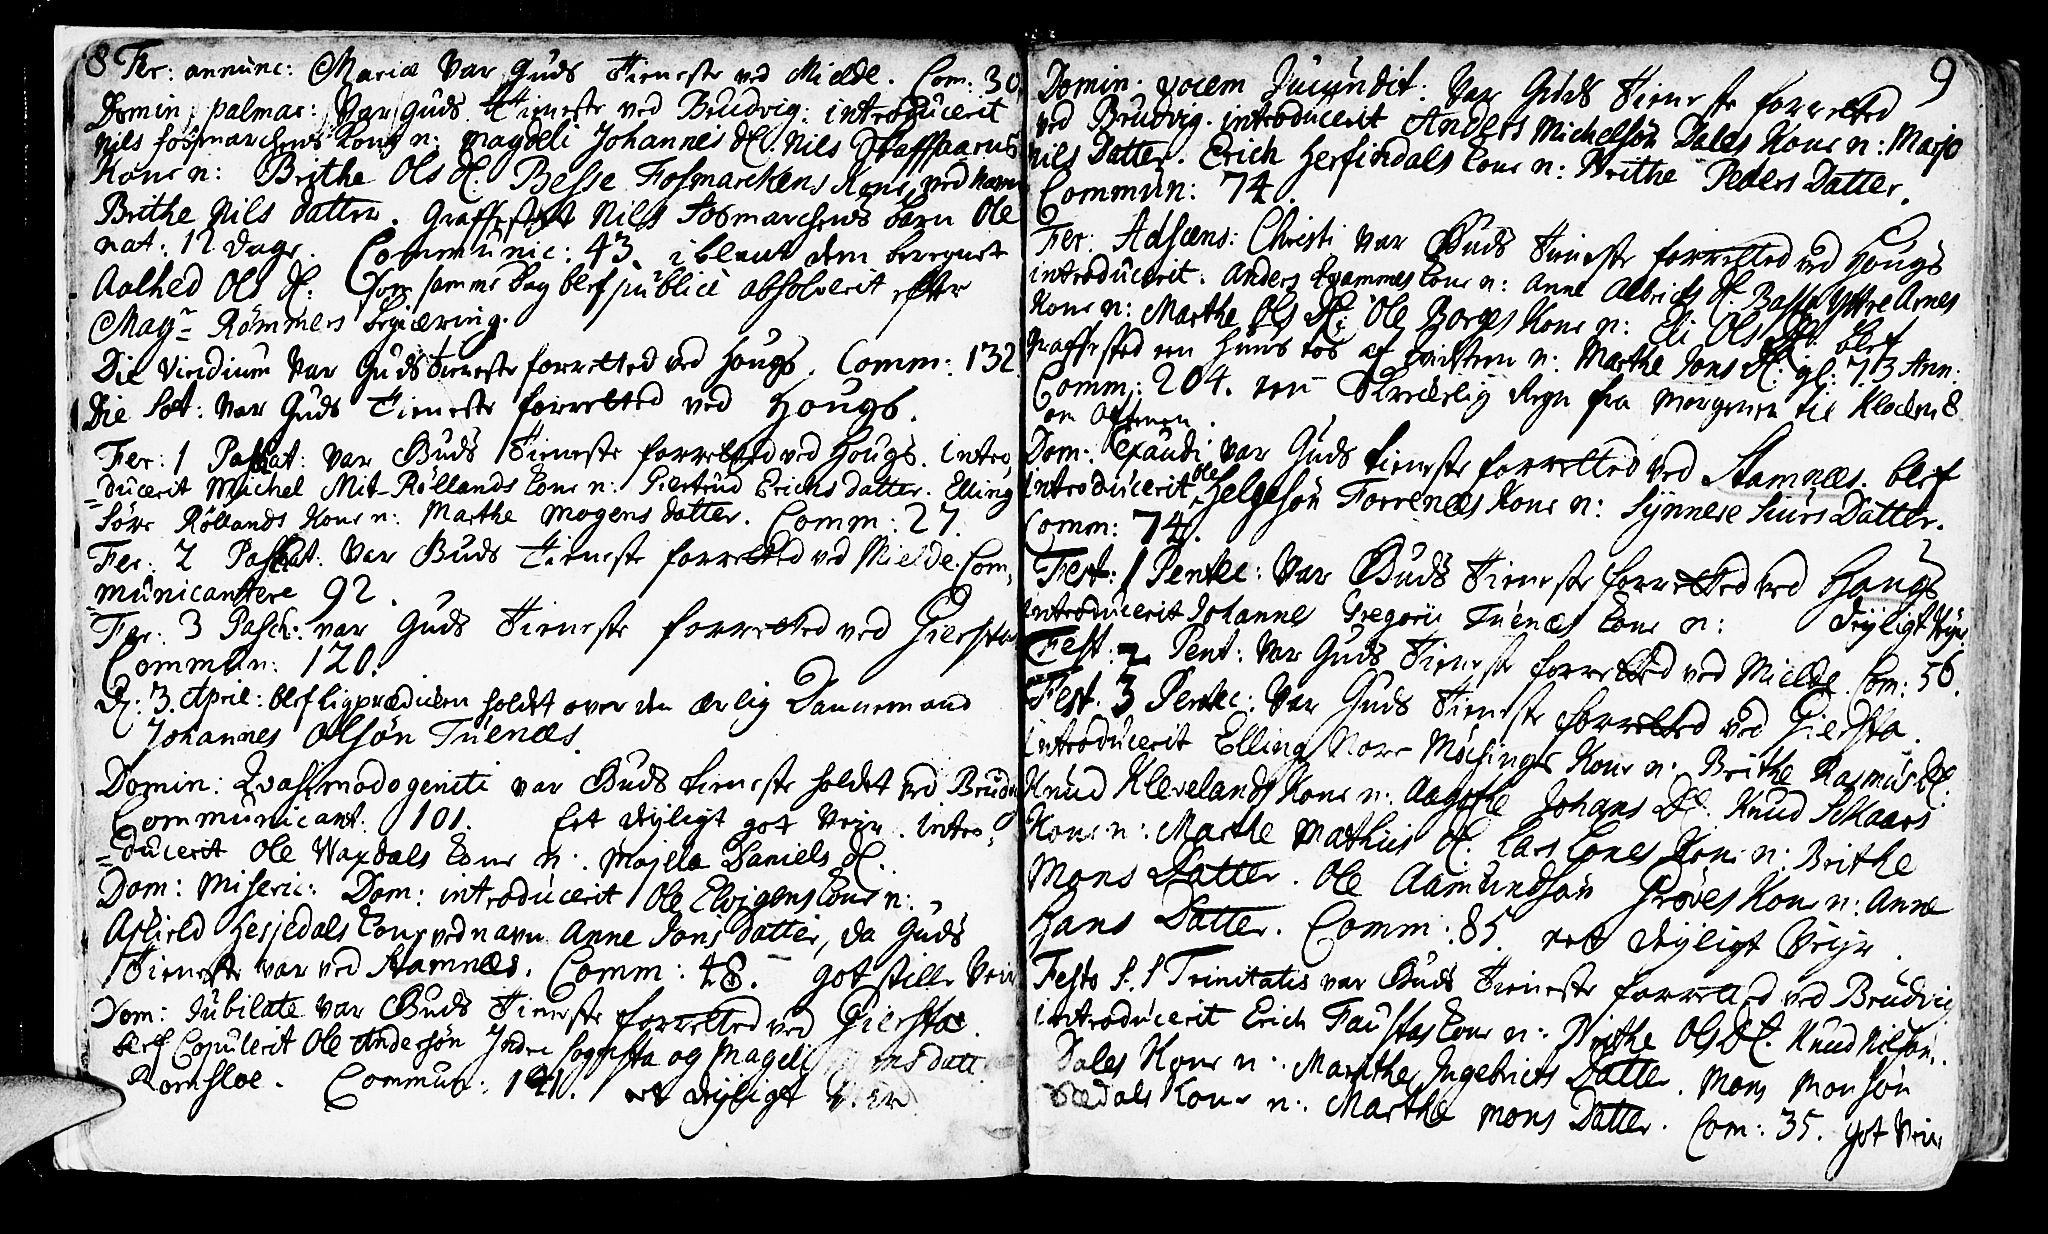 8 Fer: annunc: Mariæ var Guds Tieneste ved Mielde. Com: 30.
Domin: palmar: Var Guds Tieneste ved Brudvig: introducerit
Nils fosmarchens kone n: Magdeli Johannes D. Nils Skaffaarns
Kone n: Brithe Ols D. Besse Fosmarckens Kone, ved Navn
Brithe Nils datter. Graffested Nils Fosmarchens barn Ole
nat: 12 dage. Communic: 43. iblant dem beregnet
Aalhed Ols D: som samme Dag blef publicè absolverit efter
Magr= Römmers begiæring.
Die viridium var Guds Tieneste forretted ved Hougs. Comm: 132.
Die Sat: var Guds Tieneste forretted ved Hougs.
Fer: 1 Paschat: var Guds Tieneste forretted ved Hougs. intro
=ducerit Michel Mit-Röllands kone n: Giertrud Erichs datter. Elling
Söre Röllands Kone n: Marthe Mogens datter. Comm: 27.
Fer: 2 Paschat: Var Guds Tieneste forretted ved Mielde. Com,
=municantere 92.
Fer: 3 Pasch: var Guds Tieneste forretted ved Giersta
Commun: 120.
D: 3. April: blef Ligprædicken holdet over den ærlig Dannemand
Johannes Olsön Tuenæs.
Domin: Qvasimodogeniti var Guds tieneste holdet ved Brudv
Communicant: 101. Eet deyligt got Veyr. intro=
=ducerit Ole Vaxdals kone n: Majela Daniels D.
Dom: Miseric: Dom: introducerit Ole Elvigens kone n:
Aslield Hesjedals kone ved navn Anne Jons datter, da Guds
Tieneste var ved Stamnes. Comm: 48. got stille Veir
Dom: Jubilate var Guds Tieneste forretted ved Giersta.
blef Copulerit Ole Andersön Indre Songsta og Mageli ens datt.
Romsloe. Commun: 141. et deyligt veir
9
Domin: vocem Jucundit: Var Guds Tieneste forretted
ved Brudvig. introducerit Anders Michelsön Dales Kone n: Marjo
Nils Datter. Erich Herfindals kone n: Brithe Peders Datter.
Commun: 74.
Fer: Adscens: Christi var Guds Tieneste forretted ved Hougs
introducerit. Anders Kvammes kone n: Anne Albricts D. Basse Yttre Arnes
Kone n: Marthe Ols D: Ole Borges Kone n: Eli Ols D. blef
graffested een Huus kos af n: Marthe Jons D. gl: 73 Ann:
Comm: 204. een Skrækelig Regn fra Morgenen til Klocken 8
om Aftenen.
Dom: Exaudi var Guds tieneste forretted ved Stamnæs. blef
introducerit Ole Helgesön Forrenæs Kone n: Synneve Siurs Datter.
Comm: 74.
Fest: 1 Pentec: var Guds Tieneste forretted ved Hougs
introducerit Johanne Gregorii Tuenæs kone n: Deyligt Veyr
Fest: 2 Pent: var Guds Tieneste forretted ved Mielde. Com: 56.
Fest. 3 Pentec: Var Guds Tieneste forretted ved Giersta.
introducerit Elling Nore Mösinges Kone n: Brithe Rasmus D:
Knud Klevelands Kone n: Aagothe Johans D. Knud Skaars
Kone n: Marthe Mathies D. Lars Lones Kone n: Brithe
Mons Datter. Ole Aamundsön Gröves Kone n: Anne
Hans Datter. Comm: 85. eet deyligt Veyr.
Festo S. S Trinitatis var Guds Tieneste forretted ved Brudvig
introducerit Erich Faustas kone n: Brithe Ols D. Knud Nilsön.
Dales Kone n: Marithe Ingebricts Datter. Mons Monsön
Kone n: Marthe Mons Datter. Com: 35. got Veir